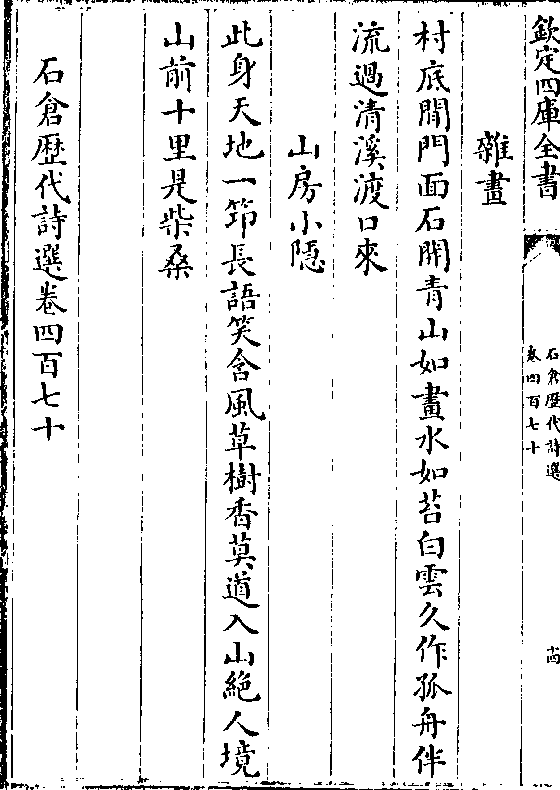 欽定四庫全書
石倉歷代詩選
卷四百七十
雜畫
村底開門面石開青山如畫水如苔白雲久作孤舟伴
流過清溪渡口來
山房小隱
此身天地一笻長語笑含風草樹香莫道入山絶人境
山前十里是柴桑
石倉歷代詩選卷四百七十